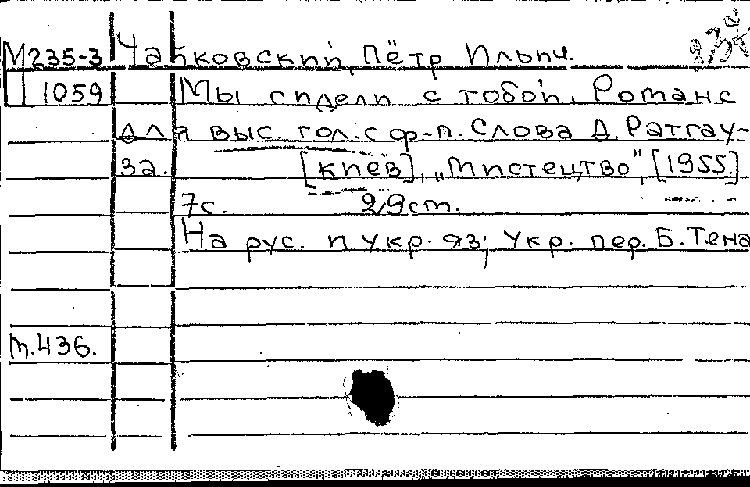 М235-3 Чайковский, Пётр Ильич.
1059 Мы сидели с тобой. Романс
для выс. гол. с ф-п. Слова Д. Ратгау-
за. [Киев], „Мистецтво", [1955].
7с. 29 cm.
На рус. и укр. яз; Укр. пер. Б. Тена
т.436.